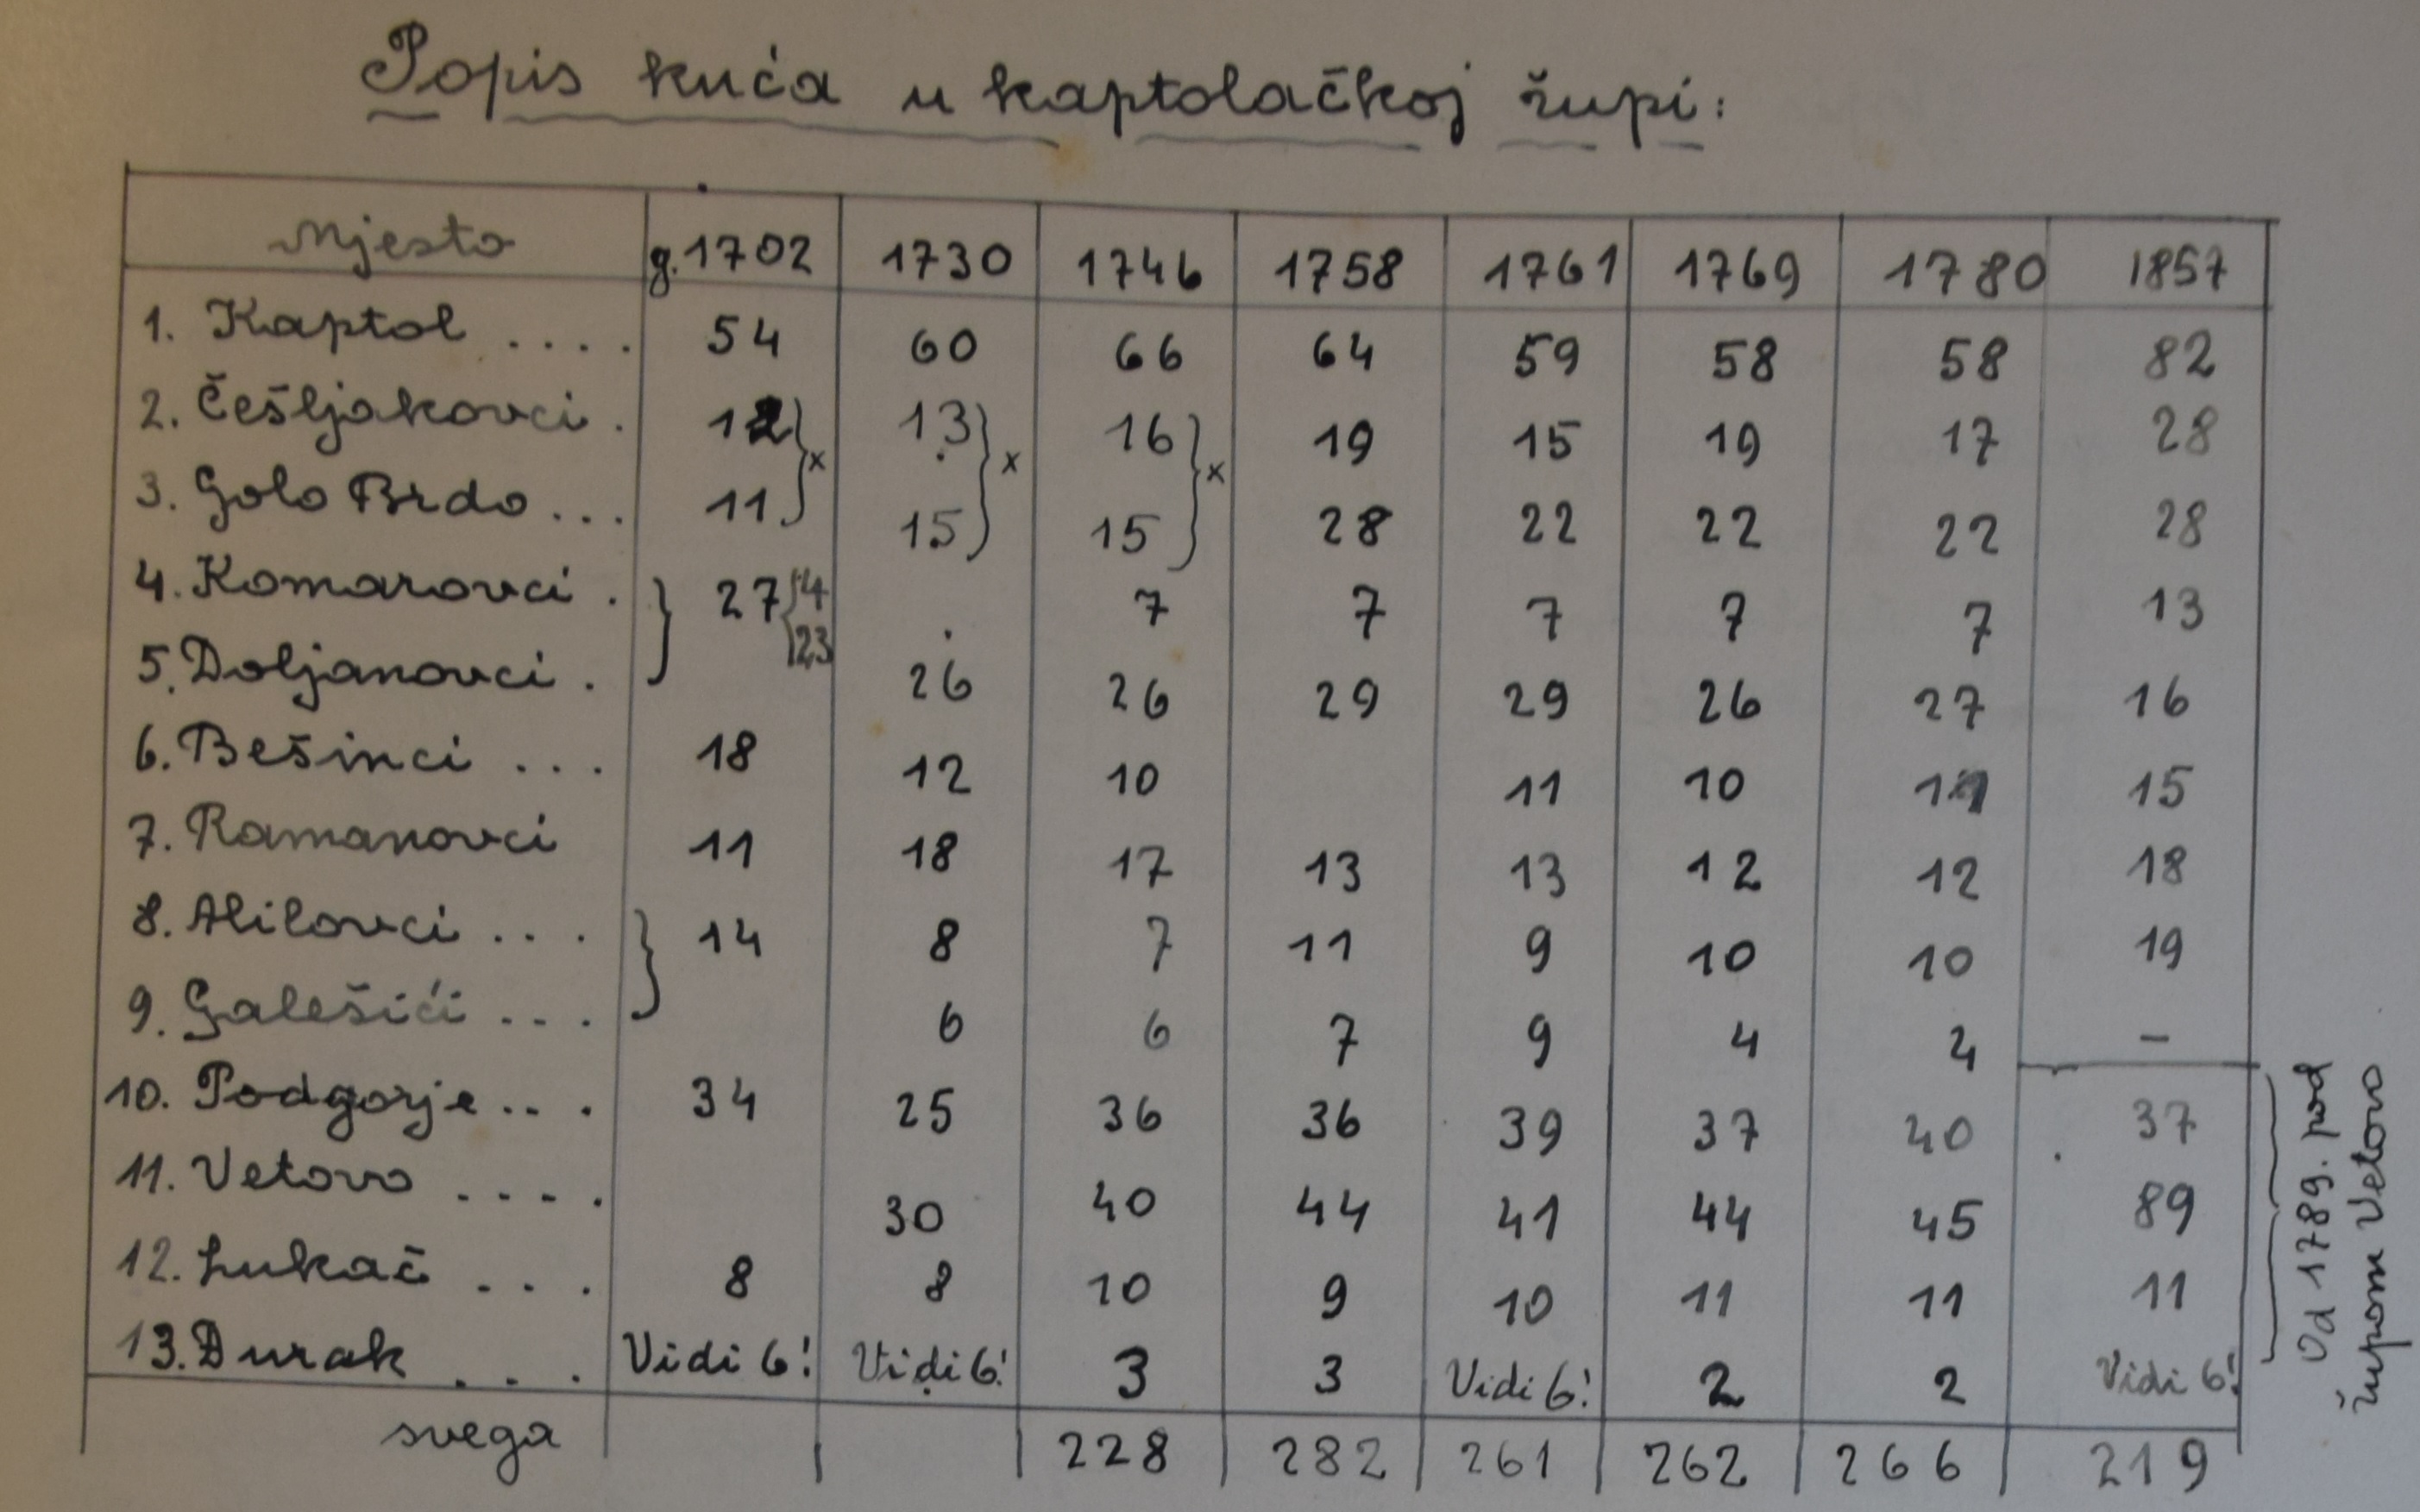 Popis kuća u kaptolačkoj župi:
Mjesto g.1702 1730 1746 1758 1761 1769 1780 1857
1. Kaptol .... 54 60 66 64 59 58 58 82
2. Češljakovci . 12 } x 13 } x 16 } x 19 15 19 17 28
3. Golo Brdo ... 11 15 15 28 22 22 22 28
4. Komarovci . } 27 { 4 . 7 7 7 7 7 13
5. Doljanovci . 23 26 26 29 29 26 27 16
6. Bešinci ... 18 12 10 11 10 15
7. Ramanovci 11 18 17 13 13 12 12 18
8. Alilovci ... } 14 8 7 11 9 10 10 19
9. Galešići ... 6 6 7 9 4 2 -
10. Podgorje ... 34 25 36 36 39 37 40 37
11. Vetovo .... 30 40 44 41 44 45 89
12. Lukač ... 8 8 10 9 10 11 11 11
13. Durak ... Vidi 6! Vidi 6! 3 3 Vidi 6! 2 2 Vidi 6!
svega 228 282 261 262 266 219
Od 1789. pod
župom Vetovo